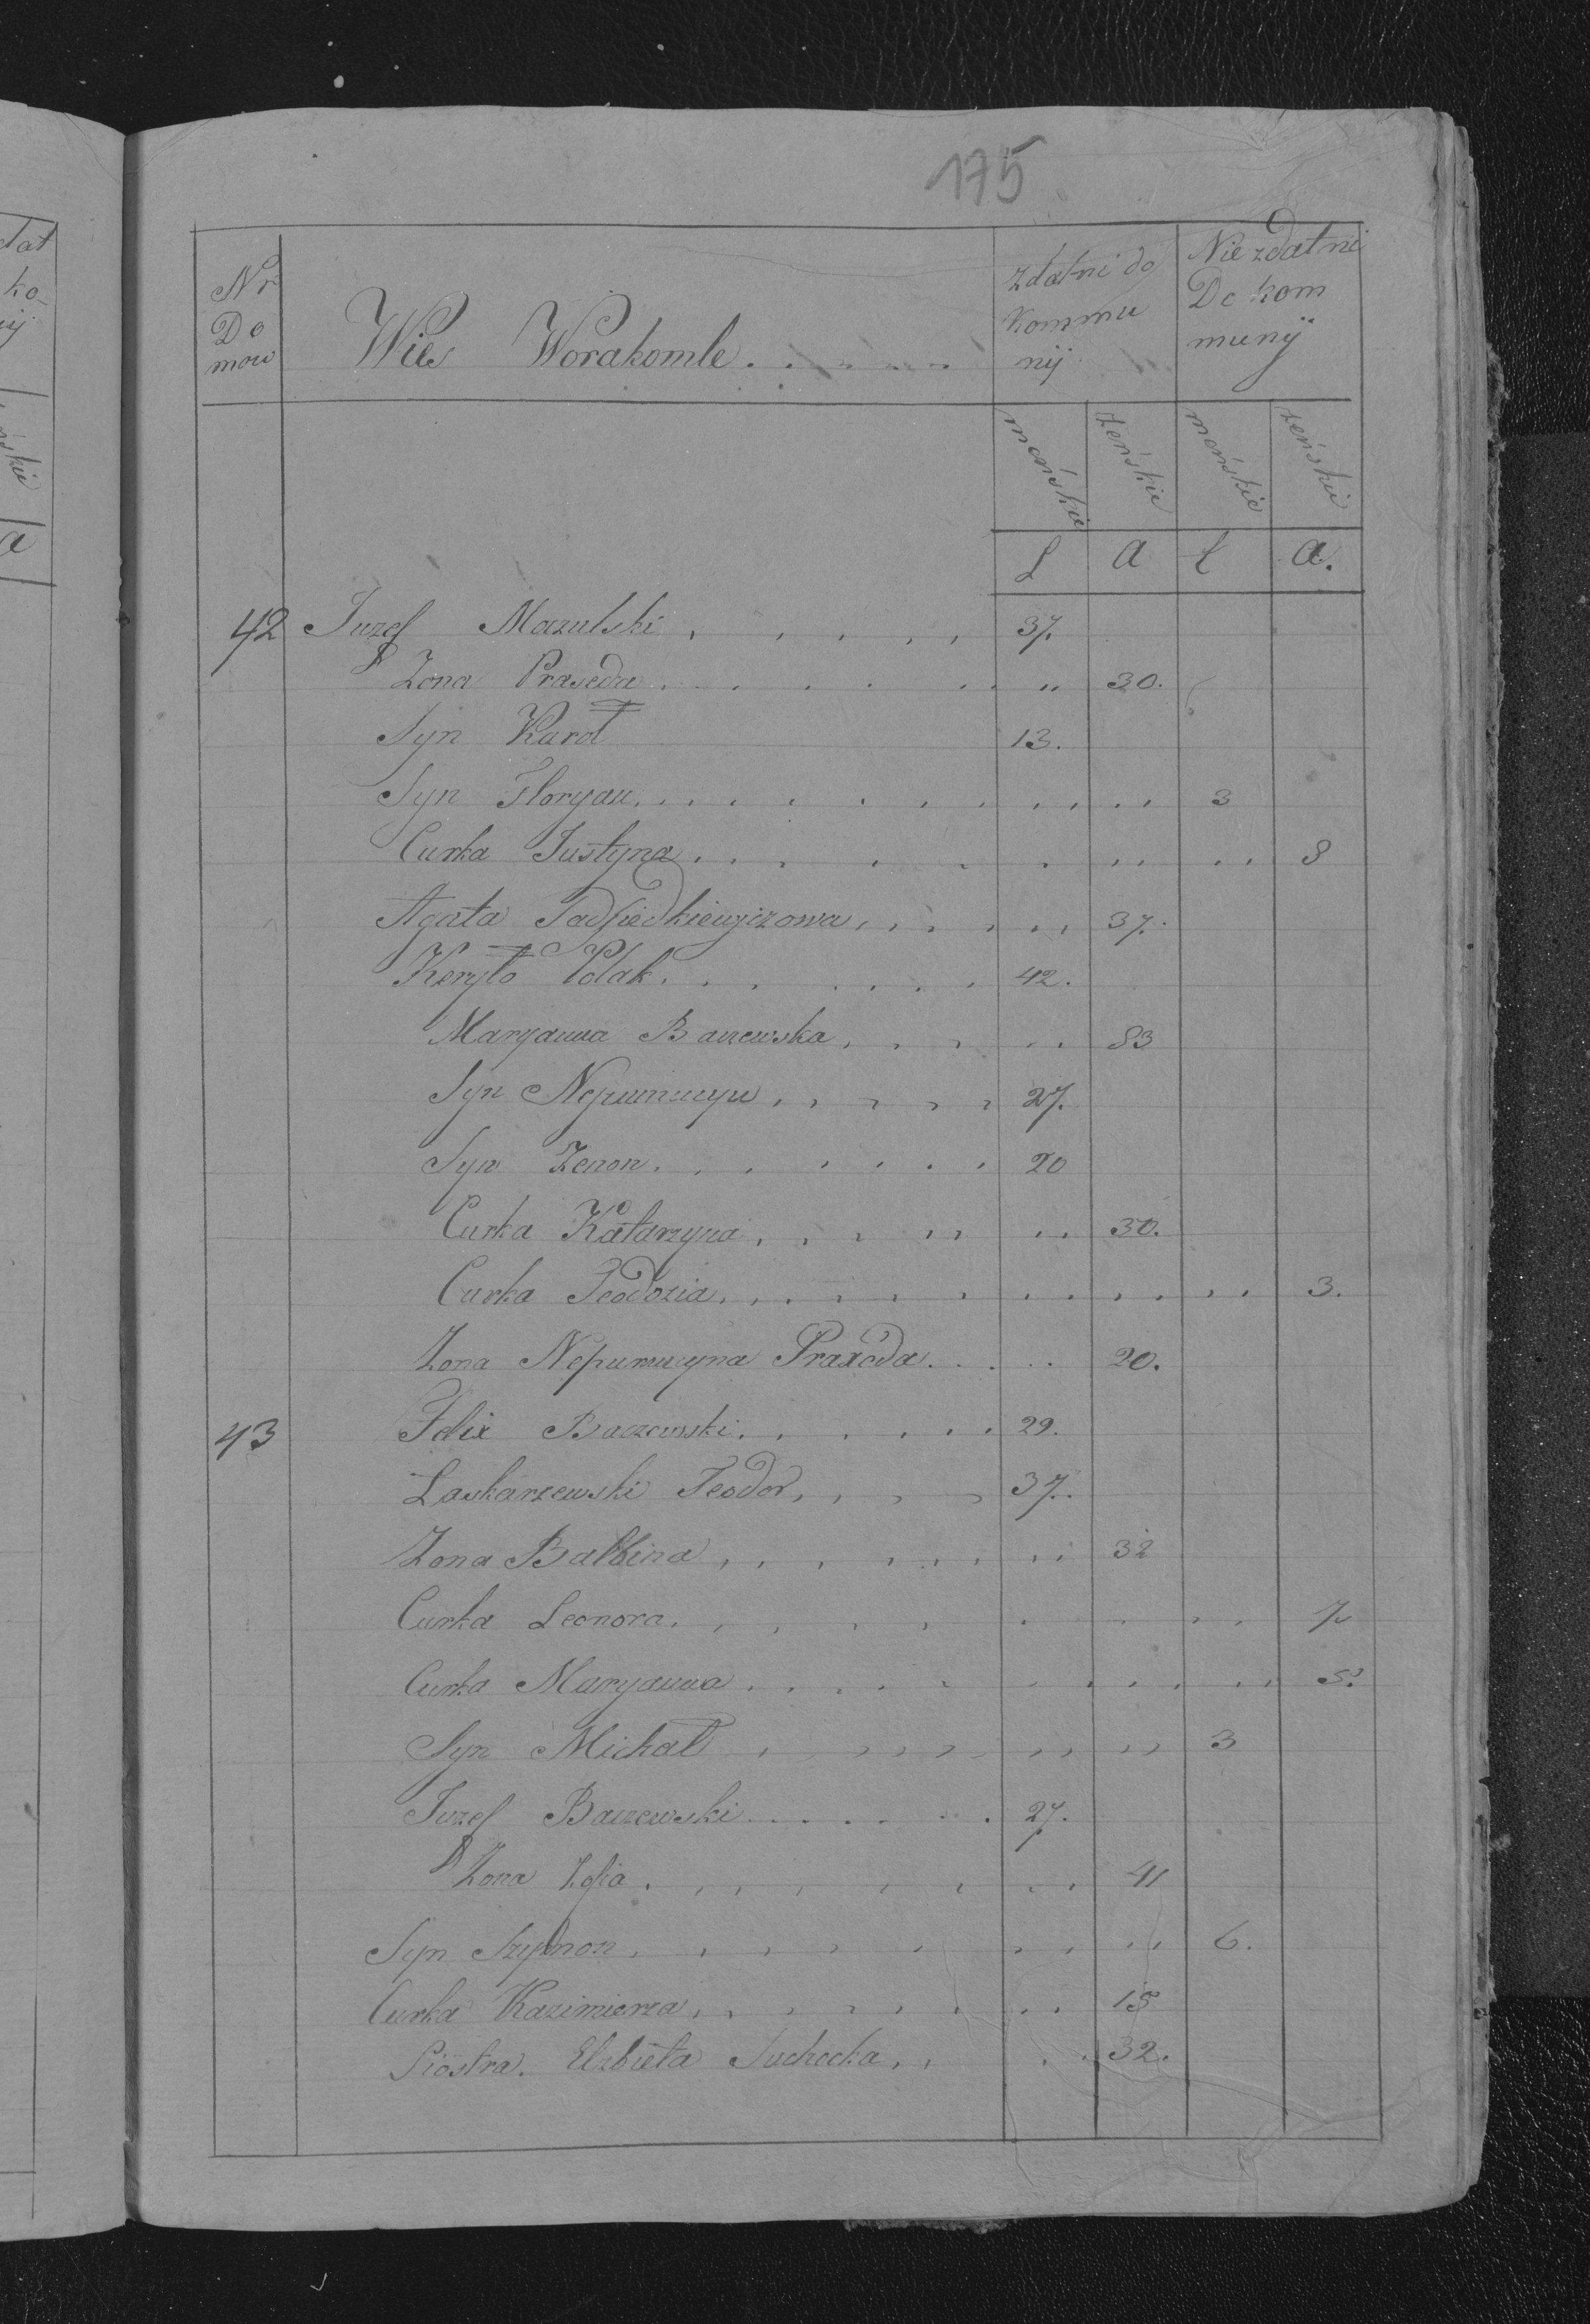 175
Nr Do mow
Wieś Worakomle
zdatni do kommu nij
Nie zdatni Do kom munij
męńskie żeńskie męńskie żeńskie
L a l a.
42 Iuzef Mazulski 37.
Zona Praseda " 30.
Syn Karol 13.
Syn Floryan 3
Curka Justyna 8
Agata 37.
Keryło Polak 42.
Maryanna Baczewska 83
Syn Nepumucyn 27.
Syn Zenon 20
Curka Katarzyna 30.
Curka Teodozia 3.
Zona Nepumucyna Praxeda 20.
43 Felix Baczewski 29.
Laskarzewski Teodor 37.
Zona Balbina 32
Curka Leonora 7
Curka Maryanna 5.
Syn Michał 3
Iuzef Baczewski 27.
Zona Zofia 41
Syn Szymon 6.
Curka Kazimierza 15
Siostra. Elzbieta Suchocka 32.
dat
ko-
ij
ńskie
a